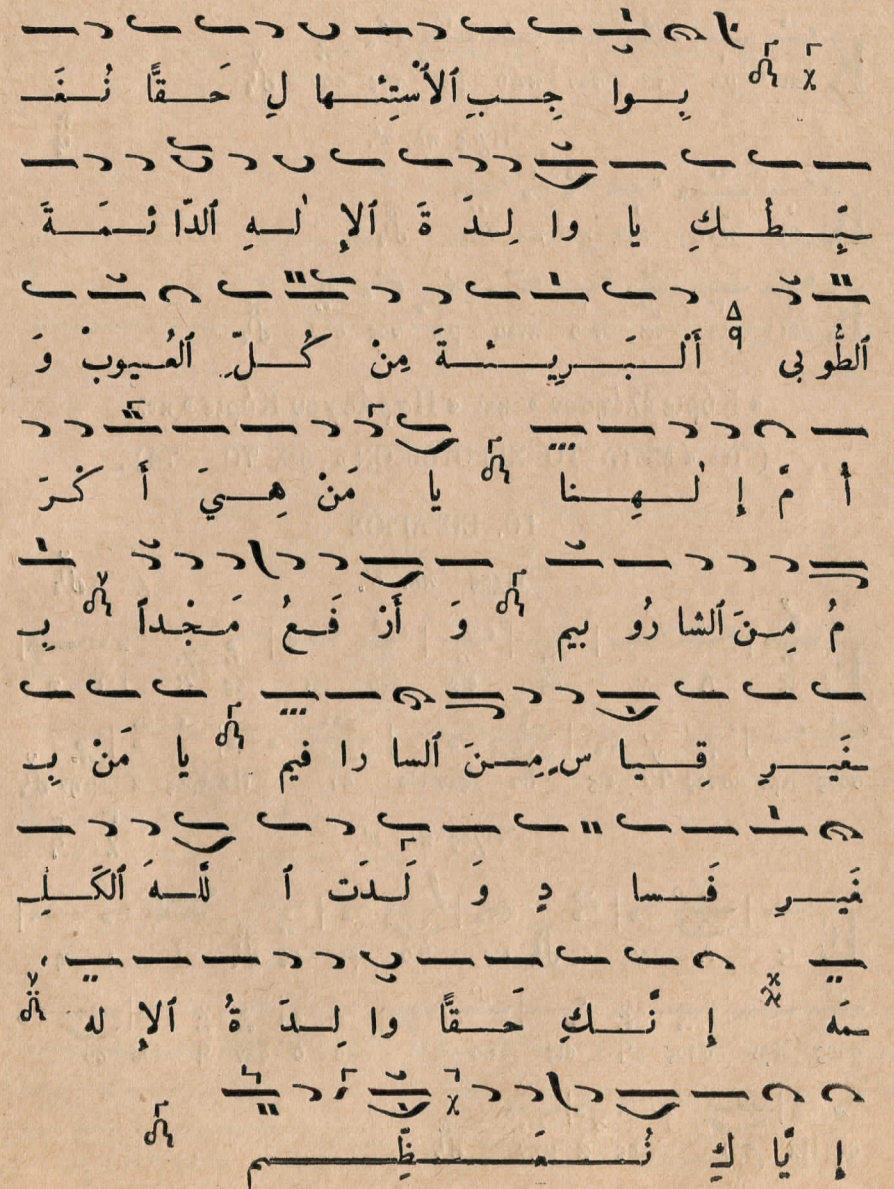 بِـوا جِـبِ ٱلأسْتِئْـها لِ حَـقًّا نُـغَـ
ـبِّـطُـكِ يا وا لِـدَ ةَ ٱلإِ لٰـهِ ٱلدّا ئـمَـةَ
ٱلطُّو بى أَلْـبَـرِيـئـةَ مِنْ كُـلِّ ٱلعُـيوبْ وَ
أُ مَّ إِ لٰـهِـنا يا مَنْ هِـيَ أَ كْـرَ
مُ مِـنَ ٱلشا رُو بيم وَ أَرْ فَـعُ مَـجْـداً بِـ
ـغَيـرِ قِـيـا سٍ مِـنَ ٱلسا را فيم يا مَنْ بِـ
غَيـرِ فَـسا دٍ وَ لَـدَت ٱ للَّـهَ ٱلكَـلِـ
ـمَه إِ نَّـكِ حَـقًّا وا لِـدَ ةُ ٱلإِ له
إِ يَّا كِ نُـعَـظِّـم